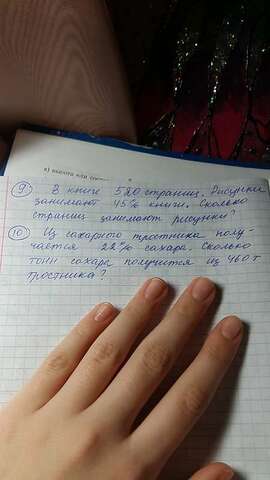 в) высота или
9. В книге 520 страниц. Рисунки
занимают 45% книги. Сколько
страниц занимают рисунки?
10. Из сахарного тростника полу-
чается 22% сахара. Сколько
тонн сахара получится из 460 т
тростника?